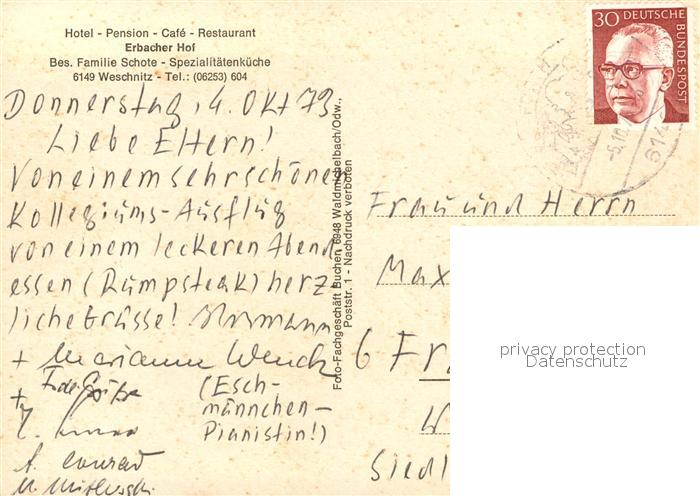 Hotel - Pension - Café - Restaurant
Erbacher Hof
Bes. Familie Schote - Spezialitätenküche
6149 Weschnitz - Tel.: (06253) 604
Donnerstag, 4. Okt 73
Liebe Eltern!
Von einem sehr schönen
Kollegiums-Ausflug
von einem leckeren Abend
essen (Rumpsteak) herz-
liche Grüsse!
+ Marianne Wenck
+
(Esch-
männchen-
Pianistin!)
A. Conrad
Foto-Fachgeschäft Buchen, 6948 Waldmichelbach/Odw.,
Poststr. 1 Nachdruck verboten
30 DEUTSCHE
BUNDESPOST
-5.10.
614
Frau und Herrn
Max
6 Fr
W
Siedl
privacy protection
Datenschutz